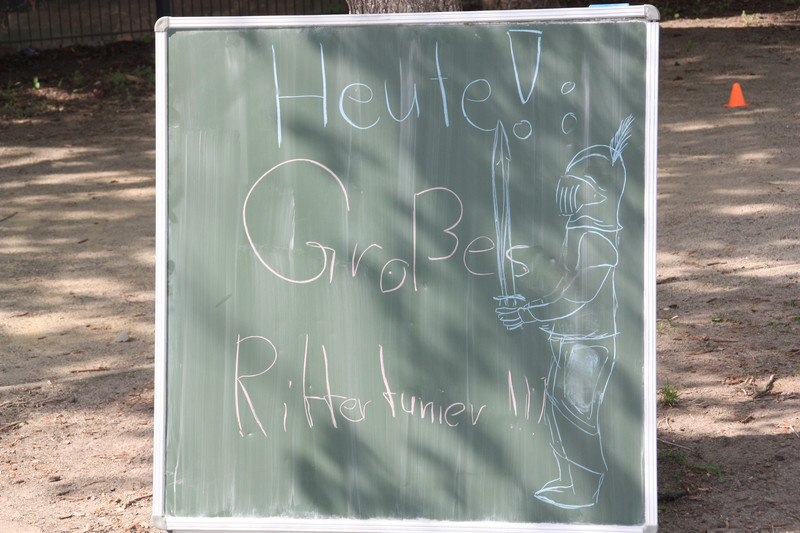 Heute! :
Großes
Rittertunier !!!